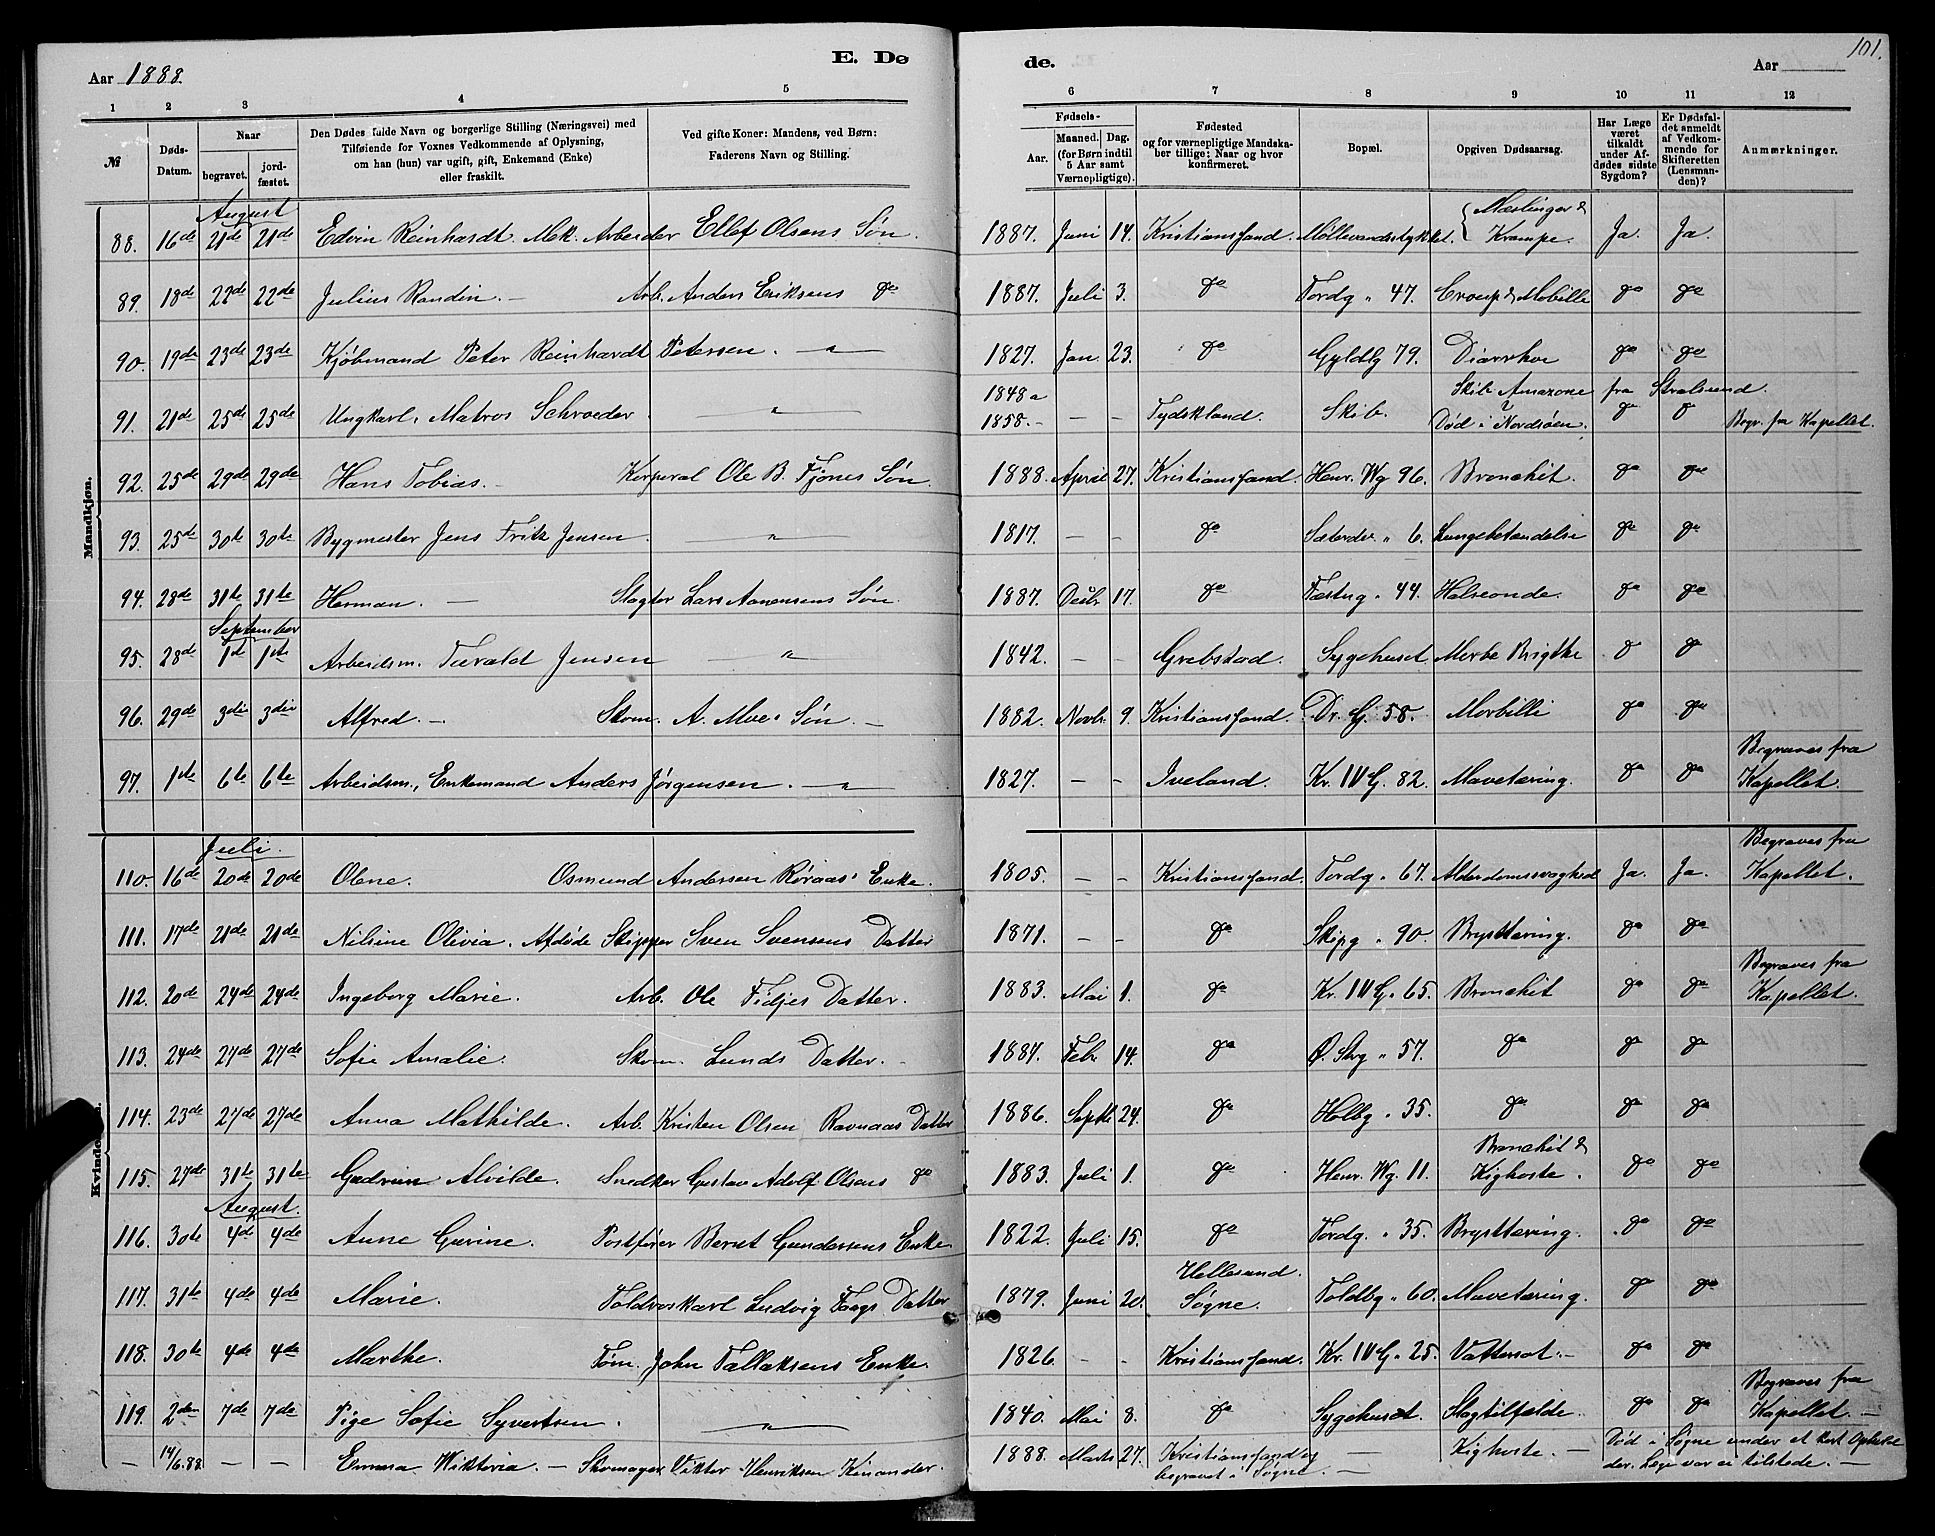 101.
E. Dø de.
Aar 1888. Aar
1 2 3 4 5 6 7 8 9 10 11 12
№ Døds-Datum. Naar begravet. jordfæstet. Den Dødes fulde Navn og borgerlige Stilling (Næringsvei) med Tilføiende for Voxnes Vedkommende af Oplysning, om han (hun) var ugift, gift, Enkemand (Enke) eller fraskilt. Ved gifte Koner: Mandens, ved Børn: Faderens Navn og Stilling. Fødsels- Aar. Maaned. Dag. (for Børn indtil 5 Aar samt Værnepligtige). Fødested og for værnepligtige Mandskaber tillige: Naar og hvor konfirmeret. Bopæl. Opgiven Dødsaarsag. Har Læge været tilkaldt under Afdødes sidste Sygdom? Er Dødsfaldet anmeldt af Vedkommende for Skifteretten (Lensmanden)? Anmærkninger.
Mandkjøn.
August
88. 16de 21de 21de Edvin Reinhardt. Mek. Arbeider Ellef Olsens Søn. 1887. Juni 14. Kristianssand. Møllevandsstykket. Mæslinger & Krampe. Ja. Ja.
89. 18de 22de 22de Julius Randin. — Arb. Anders Eriksens do 1887. Juli 3. do Tordg " 47. Croup & Mobilli do do
90. 19de 23de 23de Kjøbmand Peter Reinhardt Petersen. — " — 1827. Jan. 23. do Gyldlg 79. Diarrhoe do do
91. 21de 25de 25de Ungkarl, Matros Schroeder. — " — 1848 a 1858. — — Tydskland. Skib. Skib. Amazone fra Stralsund Død i Nordsøen. do do Begr. fra Kapellet.
92. 25de 29de 29de Hans Tobias. — Korporal Ole B. Fjønes Søn 1888. April 27. Kristianssand. Henr. Wg 96. Bronchit. do do
93. 25de 30te 30te Bygmester Jens Fritz Jensen. — " — 1817. — — do Sæterdev. " 6. Lungebetændelse do do
94. 28de 31te 31te Herman. — Slagter Lars Aanensens Søn. 1887. Decbr 17. do Fæstng " 44. Halseonde. do do
September
95. 28de 1ste 1ste Arbeidsm. Tarald Jensen — " — 1842. — — Grebstad. Sygehuset. Morbu Brigthe do do
96. 29de 3die 3die Alfred. — Skom. A. Moe's Søn. — 1882. Novbr. 9. Kristianssand. Dr. G. 58. Morbilli do do
97. 1ste 6te 6te Arbeidsm., Enkemand Anders Jørgensen. — " — 1827. — — Iveland. Kr. IV G. 82. Mavetæring. do do Begraves fra Kapellet.
Juli.
110. 16de 20de 20de Olene. Osmund Andersen Røraas' Enke. 1805. — — Kristianssand. Tordg " 67. Alderdomssvaghed Ja. Ja. Begraves fra Kapellet.
111. 17de 21de 21de Nilsine Olivia. Afdøde Skipper Sven Svensens Datter 1871. — — do Skipg " 90. Brysttæring. do do
112. 20de 24de 24de Ingeborg Marie. Arb. Ole Fidjes Datter. 1883. Mai 1. do Kr. IV G. 65. Bronchit do do Begraves fra Kapellet.
113. 24de 27de 27de Sofie Amalie. Skom. Lunds Datter. — 1887. Febr. 14. do Ø. Strg " 57. do do do
114. 23de 27de 27de Anna Mathilde. Arb. Kristen Olsen Ravnaas Datter 1886. Septbr 24. do Holbg " 35. do do do
115. 27de 31te 31te Gudrun Alvilde. Snedker Gustav Adolf Olsens do 1883. Juli 1. do Henr. Wg. 11. Bronchit & Kighoste. do do
August.
116. 30te 4de 4de Anne Gurine. Postfører Bernt Gundersens Enke. 1822. Juli 15. do Tordg. " 35. Brysttæring. do do
117. 31te 4de 4de Marie. Toldroskarl Ludvig Faags Datter 1879. Juni 20. Hellesund. Søgne. Toldbg " 60. Mavetæring. do do
118. 30te 4de 4de Marthe. Tøm. John Tallaksens Enke. 1826. — — Kristianssand. Kr. IV G " 25. Vattersot. — do do
119. 2den 7de 7de Pige Sofie Syvertsen. — " — 1840. Mai 8. do Sygehuset. Slagtilfælde. do do Begraves fra Kapellet. —
— 14/6.88. — — Emma Wiktoria. — Skomager Viktor Henriksen Kinander. 1888. Marts 27. Kristianssand og begravet i Søgne. — — Kighoste. — Død i Søgne under et kort Ophold der. Læge var ei tilstede. —